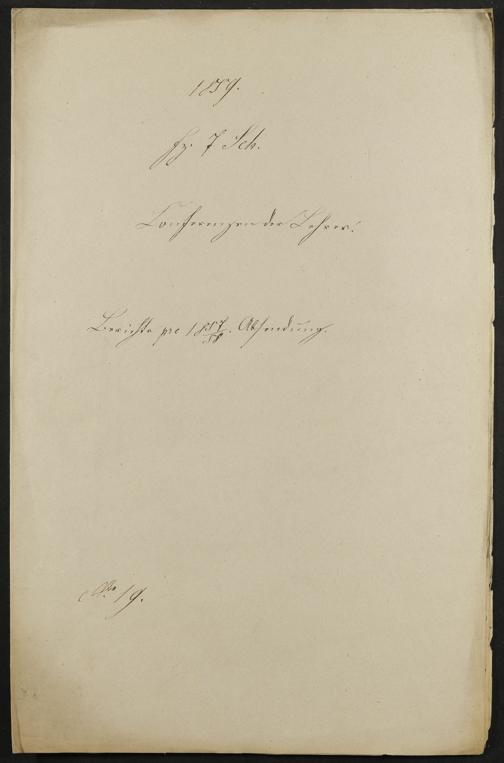 1859.
fz. 7 Sch.
Conferenzen der Lehrer.
Berichte pro 1857/58. Absendung.
No 19.